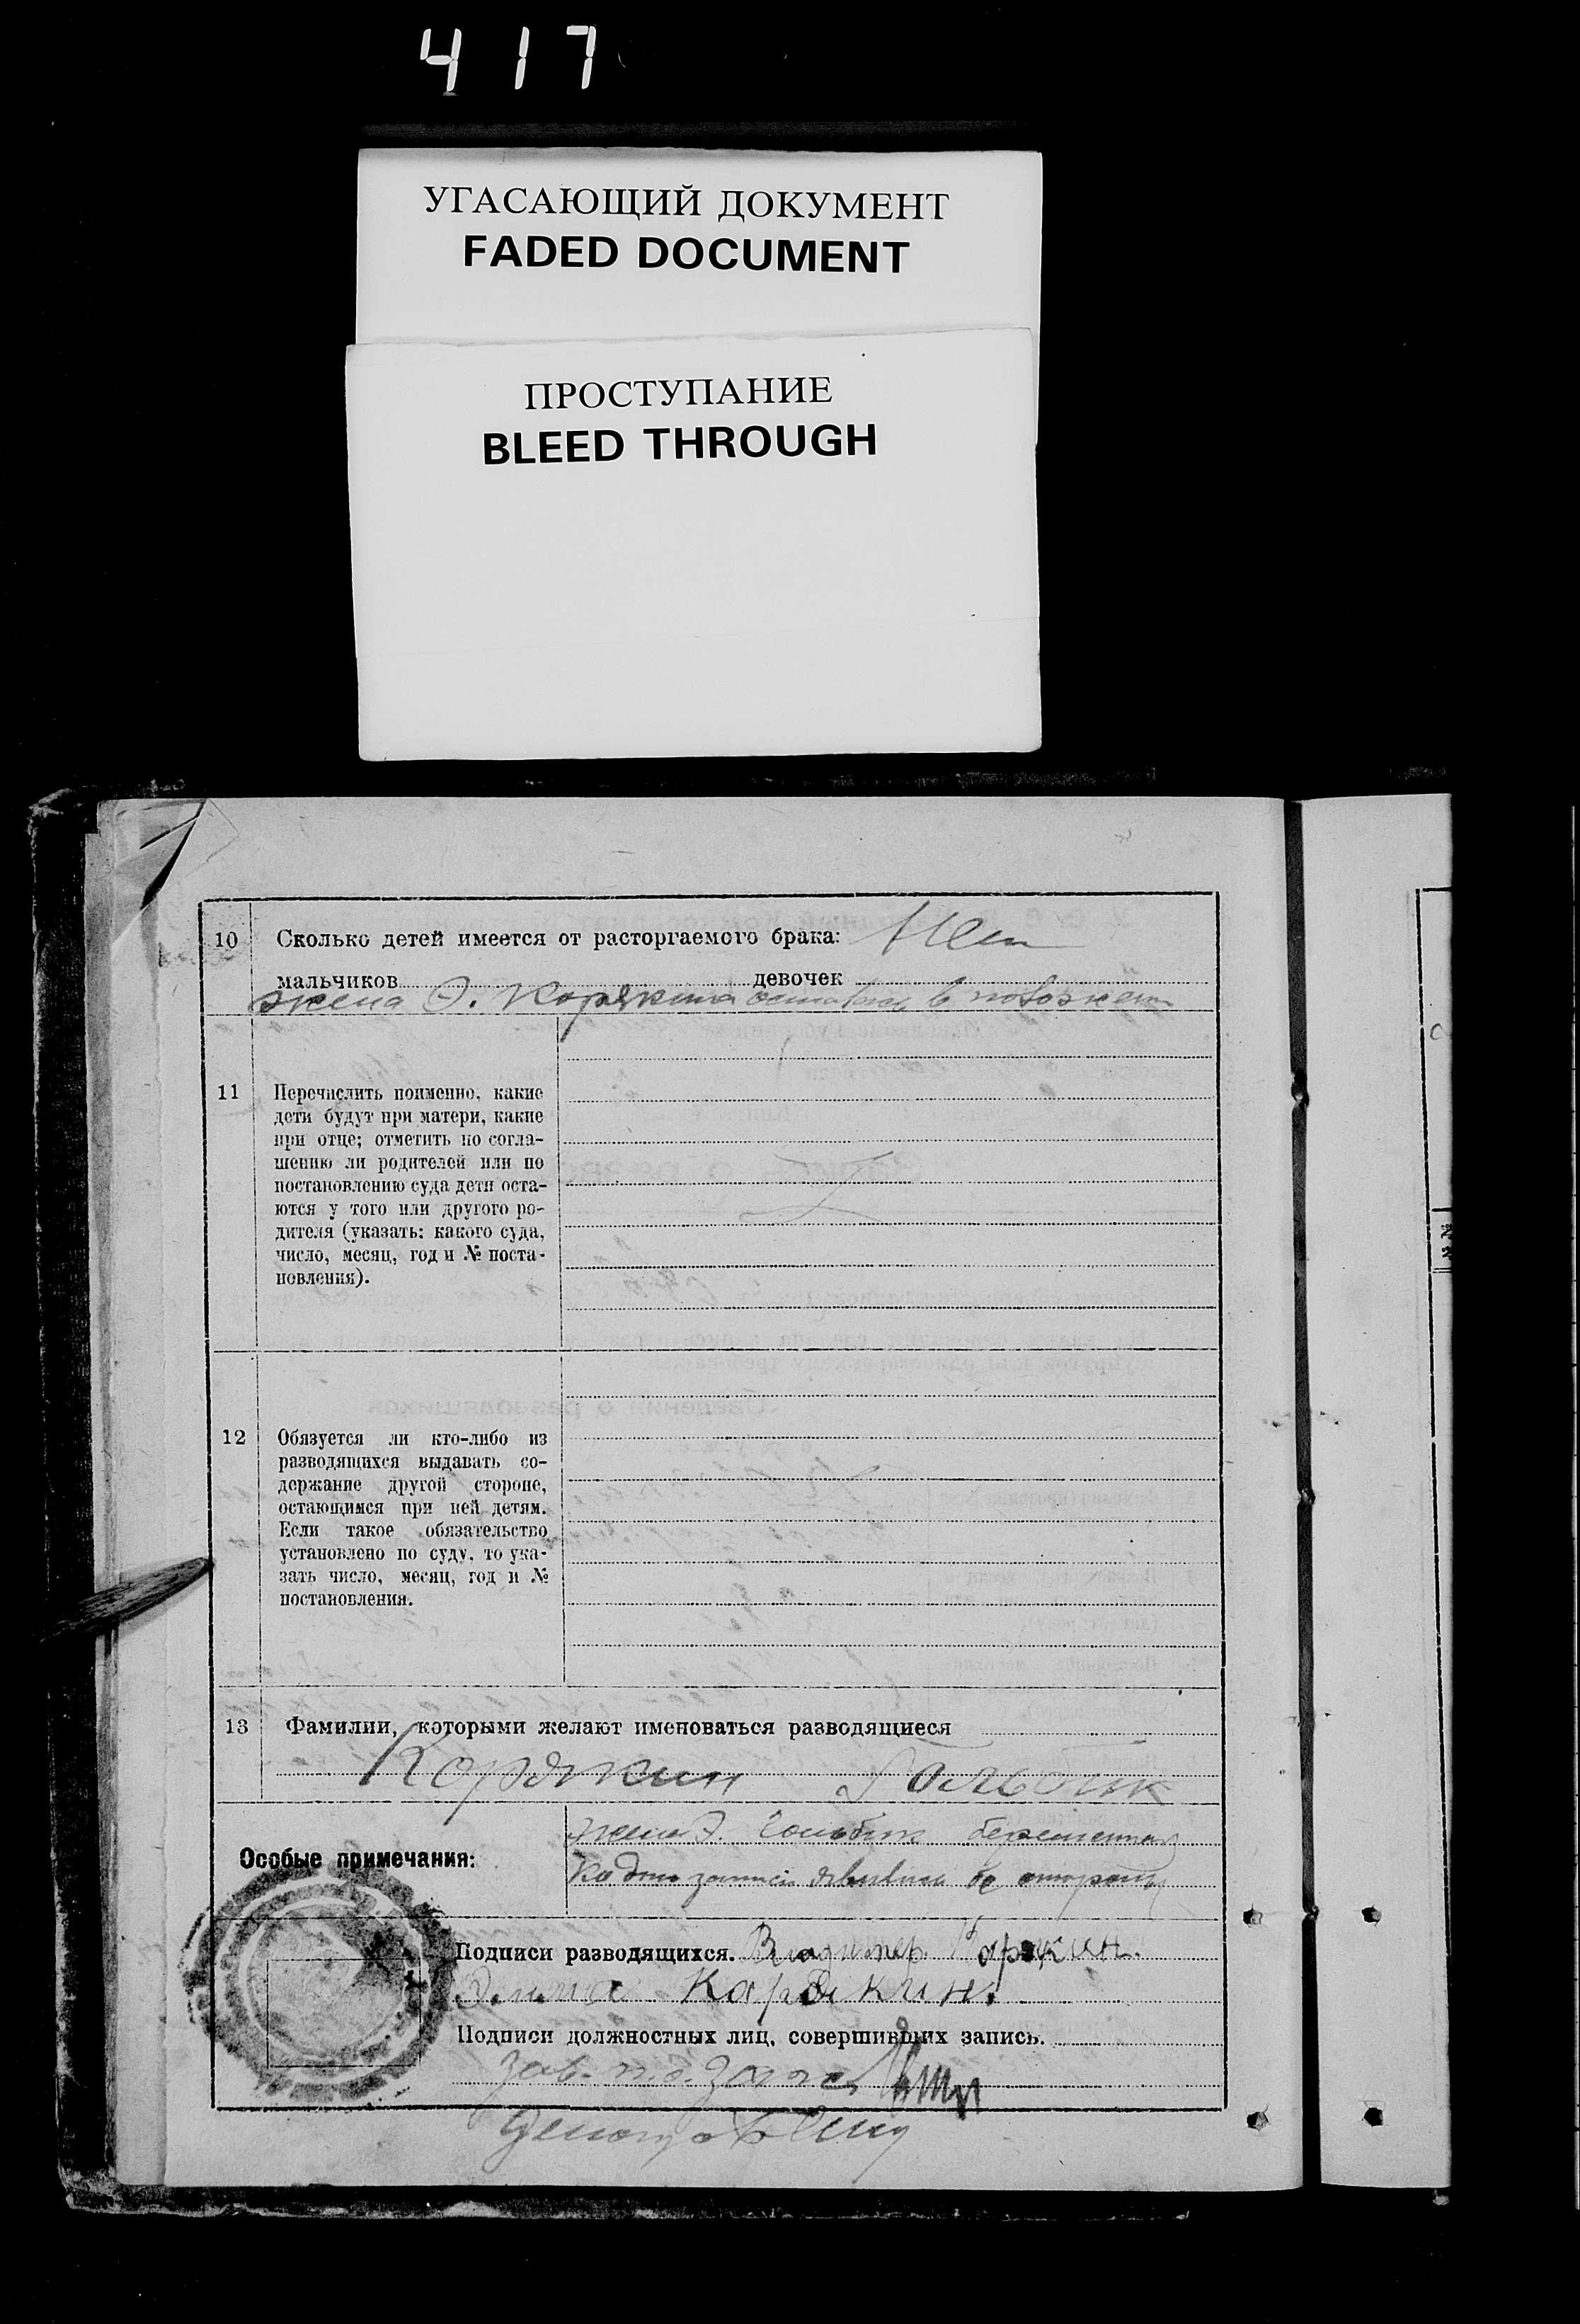 417
УГАСАЮЩИЙ ДОКУМЕНТ
FADED DOCUMENT
ПРОСТУПАНИЕ
BLEED THROUGH
10 Сколько детей имеется от расторгаемого брака: Нет
мальчиков девочек
жена Э. Корякина осталась в положении
11 Перечислить поименно, какие
дети будут при матери, какие
при отце; отметить по согла-
шению ли родителей или по
постановлению суда дети оста-
ются у того или другого ро-
дителя (указать: какого суда,
число, месяц, год и № поста-
новления).
12 Обязуется ли кто-либо из
разводящихся выдавать со-
держание другой стороне,
остающимся при ней детям.
Если такое обязательство
установлено по суду, то ука-
зать число, месяц, год и №
постановления.
13 Фамилии, которыми желают именоваться разводящиеся
Корякин Гольбик
Особые примечания:
жена Э. Гольбик беременная
запись явились
Подписи разводящихся. Владимер Карякин.
Карякин
Подписи должностных лиц, совершивших запись.
Зав. п.о. Загса
№№